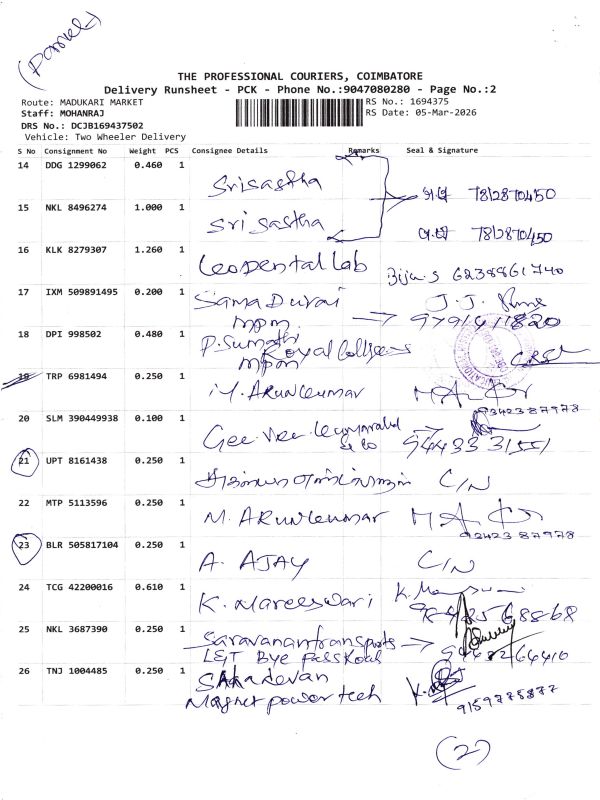 (Parcel)
THE PROFESSIONAL COURIERS, COIMBATORE
Delivery Runsheet - PCK - Phone No.:9047080280 - Page No.:2
Route: MADUKARI MARKET RS No.: 1694375
Staff: MOHANRAJ RS Date: 05-Mar-2026
DRS No.: DCJB169437502
Vehicle: Two Wheeler Delivery
S No Consignment No Weight PCS Consignee Details Remarks Seal & Signature
14 DDG 1299062 0.460 1 Srisastha 7812870450
15 NKL 8496274 1.000 1 Sri sastha 7812870450
16 KLK 8279307 1.260 1 Leo Dental lab Bija.s 6238861740
17 IXM 509891495 0.200 1 Sama Durai J.J.
mpm. 9791411820
18 DPI 998502 0.480 1 P. Sumathi
Royal
mpm
19 TRP 6981494 0.250 1 M. ARUNkumar
93423 87978
20 SLM 390449938 0.100 1 Gee. Vee.
944333 1551
21 UPT 8161438 0.250 1 C/N
22 MTP 5113596 0.250 1 M. ARUNkumar
93423 87978
23 BLR 505817104 0.250 1 A. AJAY C/N
24 TCG 42200016 0.610 1 K. Mareeswari K.
25 NKL 3687390 0.250 1 Saravanantransports
L&T Bye Pass Road
26 TNJ 1004485 0.250 1
Magnet power tech 9159775877
(2)